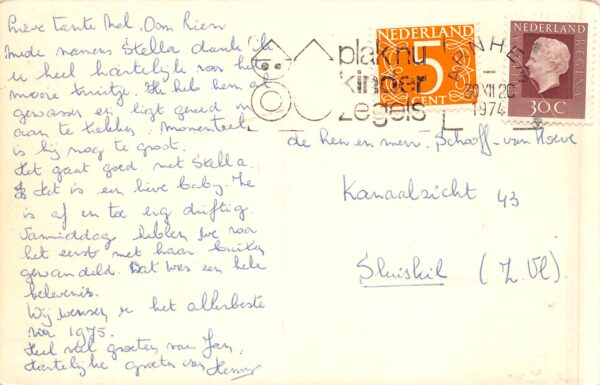 Lieve tante Mel. Oom Rien
Mede namens Stella dank ik
u heel hartelijk voor het
mooie truitje. Ik heb hem al
gewassen en ligt gereed om
aan te hebben. Momenteel
is hij nog te groot.
Het gaat goed met Stella.
Het is een lieve baby. Ze
is af en toe erg driftig.
Vanmiddag hebben we voor
het eerst met haar buiten
gewandeld. Dat was een hele
belevenis.
Wij wensen u het allerbeste
voor 1975.
Heel veel groeten van Jan,
Hartelijke groeten van Henny
plak nu
kinder
zegels
NEDERLAND
5
CENT
ARNHEM
XII 20
1974
NEDERLAND
JULIANA REGINA
30 C
de heer en mevr. Schaff-van Hoeve
Kanaalzicht 43
Sluiskil (Z.Vl)